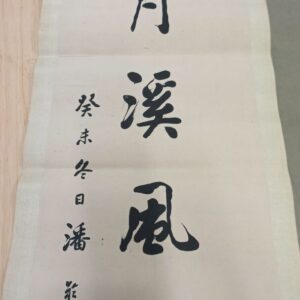 月溪風
癸未冬日潘